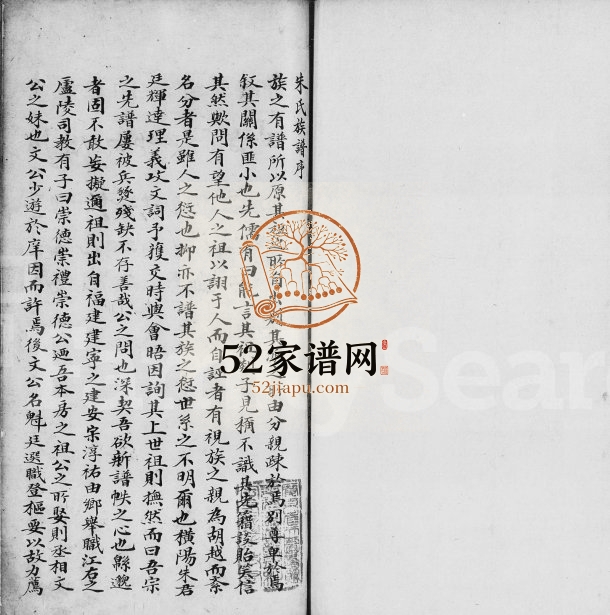 朱氏族譜序
族之有譜所以原其祖所自出其由分親疎於焉别尊卑於焉
叙其關係匪小也先儒有曰能言其祖子見稱不識其先籍談貽笑信
其然歟問有望他人之祖以詡于人而自誣者有視族之親為胡越而紊
名分者是雖人之愆也抑亦不譜其族之愆世系之不明爾也橫陽朱君
廷輝達理義攻文詞予獲交時與會晤因詢其上世祖則撫然而曰吾宗
之先譜屢被兵燹殘缺不存善哉公之問也深契吾欲新譜帙之心也緜邈
者固不敢妄擬邇祖則出自福建建寧之建安宋淳祐由鄉舉職江右之
廬陵司教有子曰崇德崇禮崇德公廼吾本房之祖公之所娶則丞相文
公之妹也文公少遊於庠因而許焉後文公名魁廷選職登樞要以故力薦
52家谱网
52jiapu.com